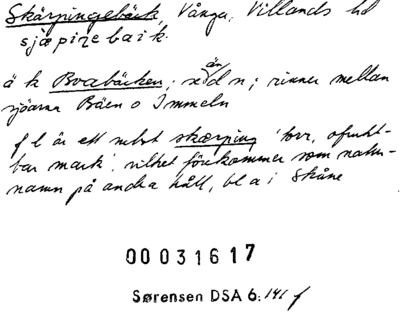 Skärpingebäck, Vånga, Villands hd
sjæpiŋebaik.
ä k Boabäcken; rinner mellan
sjöarna Bäen o Immeln
f l är ett subst skærping 'torr, ofrukt-
bar mark', vilket förekommer som natur-
namn på andra håll, bl a i Skåne
00031617
Sørensen DSA 6:141 f